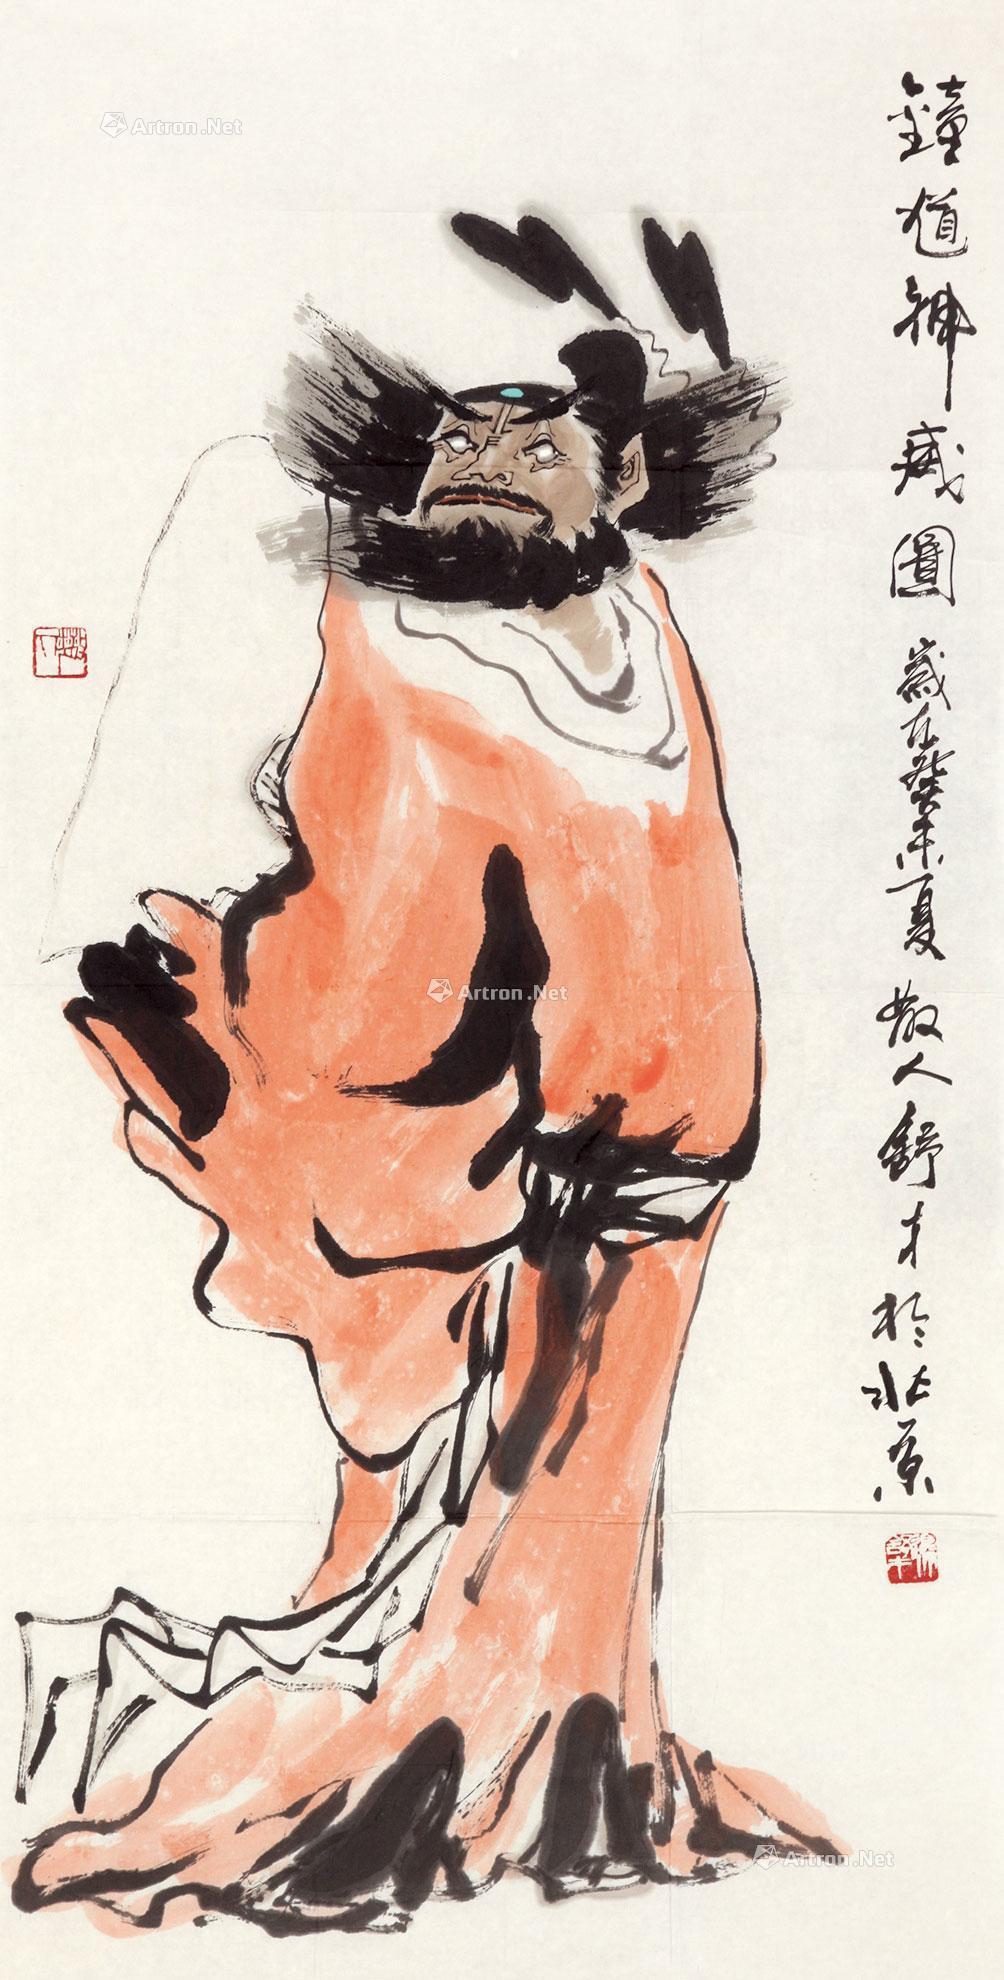 鐘馗神威圖 歲在癸未夏 散人舒才於北京
Artron.Net
Artron.Net
Artron.Net